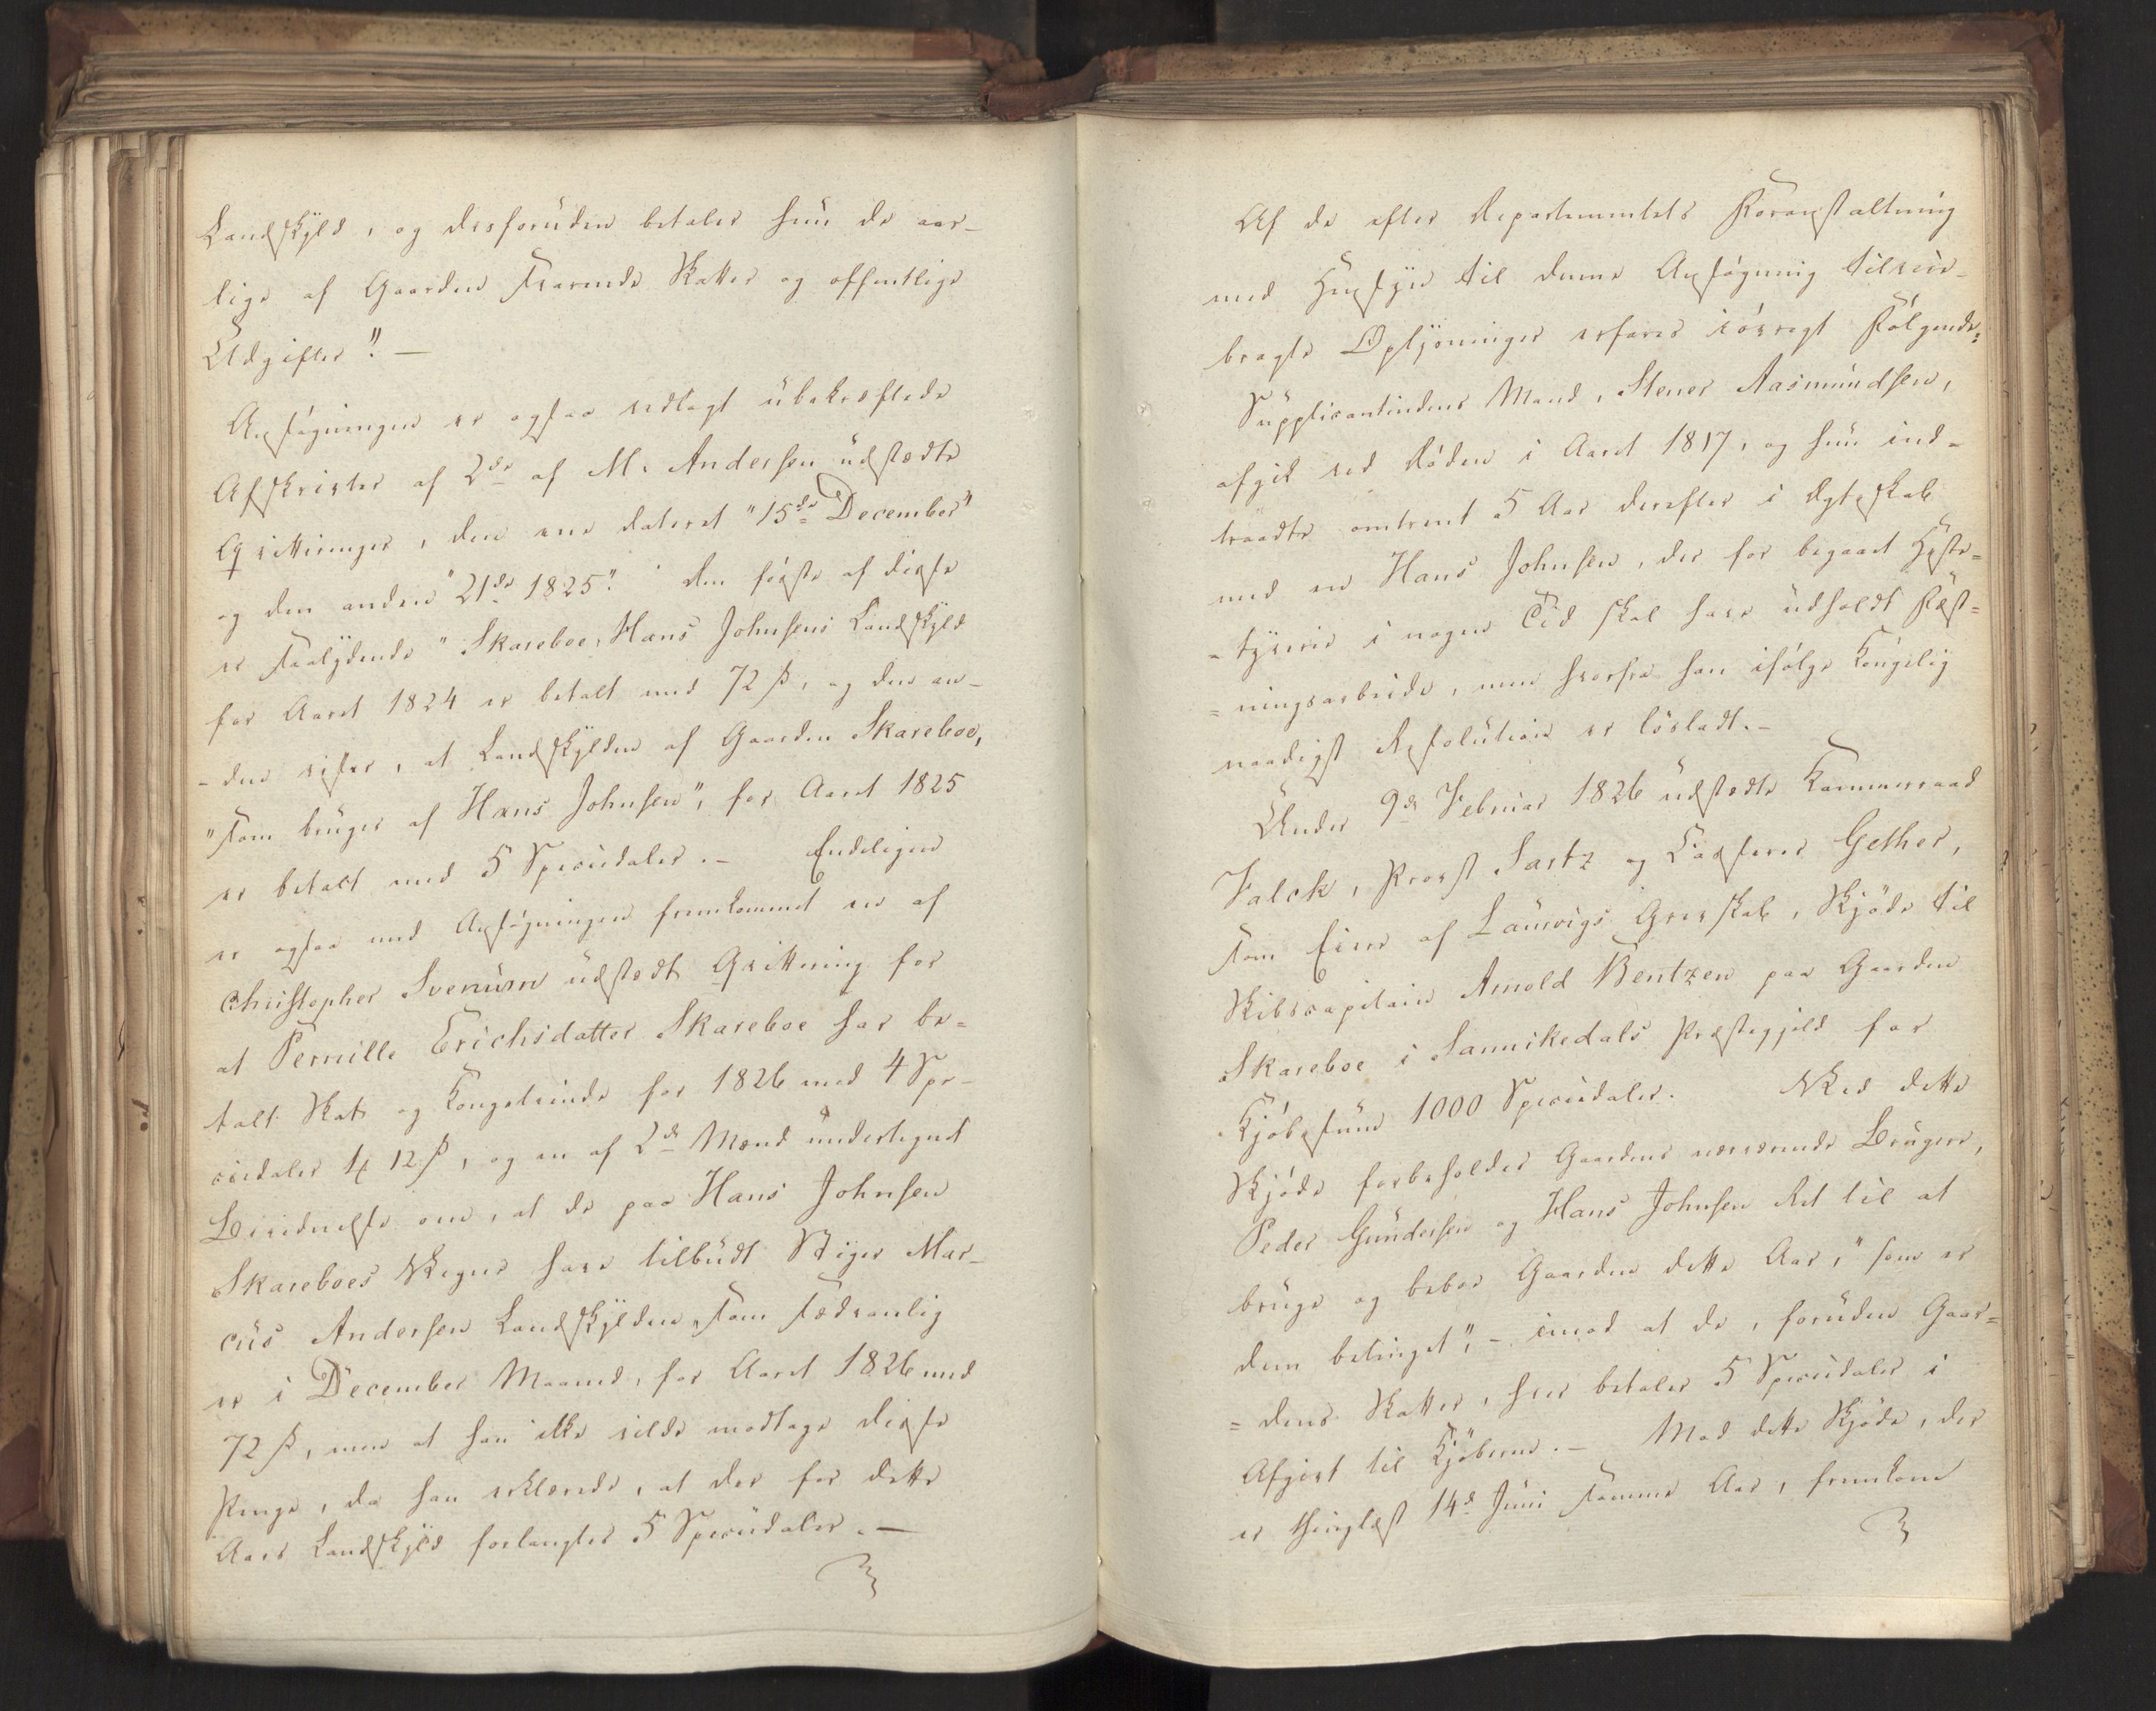 Landskyld, og desforuden betaler hun de aar-
lige af Gaarden svarende Skatter og offentlige
Udgifter". —
Ansøgningen er ogsaa vedlagt ubekræftede
Afskrivter af 2de af M. Andersen udstedte
Qvitteringer, den ene dateret "15de December"
og den anden "21de 1825". Den første af disse
er saalydende "Skareboe, Hans Johnsens Landskyld
for Aaret 1824 er betalt med 72 ß, og den an-
-den viser, at Landskylden af Gaarden Skareboe,
"som bruges af Hans Johnsen", for Aaret 1825
er betalt med 5 Speciedaler. — Endeligen
er ogsaa med Ansøgningen fremkommet en af
Christopher Svenum udstedt Qvittering for
at Pernille Erichsdatter Skareboe har be-
talt Skat og Kongetiende for 1826 med 4 Spe-
ciedaler 12 ß, og en af 2de Mænd undertegnet
Bevidnelse om, at de paa Hans Johnsen
Skareboes Vegne have tilbudt Stiger Mar-
cus Andersen Landskylden, som sædvanlig
er i December Maaned, for Aaret 1826 med
72 ß, men at han ikke vilde modtage disse
Penge, da han erklærede, at der for dette
Aars Landskyld forlangtes 5 Speciedaler. —
Af de efter Departementets Foranstaltning
med Hensyn til denne Ansøgning tilveie-
bragte Oplysninger erfares iøvrigt Følgende:
Supplicantindens Mand, Stener Aasmundsen,
afgik ved Døden i Aaret 1817, og hun ind-
traadte omtrent 5 Aar derefter i Ægteskab
med en Hans Johnsen, der for begaaet Heste-
-tyverie i nogen Tid skal have udholdt Fæst-
-ningsarbeide, men hvorfra han ifølge Kongelig
naadigst Resolution er løsladt. —
Under 9de Februar 1826 udstedte Kammerraad
Falck, Provst Sartz og Casserer Gether,
som Eiere af Laurvigs Grevskab, Skjøde til
Skibscapitain Arnold Bentzen paa Gaarden
Skareboe i Sannikedals Præstegjeld for
Kjøbesum 1000 Speciedaler. Ved dette
Skjøde forbeholdes Gaardens nærværende Brugere,
Peder Gundersen og Hans Johnsen Ret til at
bruge og beboe Gaarden dette Aar, "som er
dem betinget", - imod at de, foruden Gaar-
-dens Skatter, hver betaler 5 Speciedaler i
Afgivt til Kjøberen. — Mod dette Skjøde, der
er thinglæst 14de Juni samme Aar, fremkom